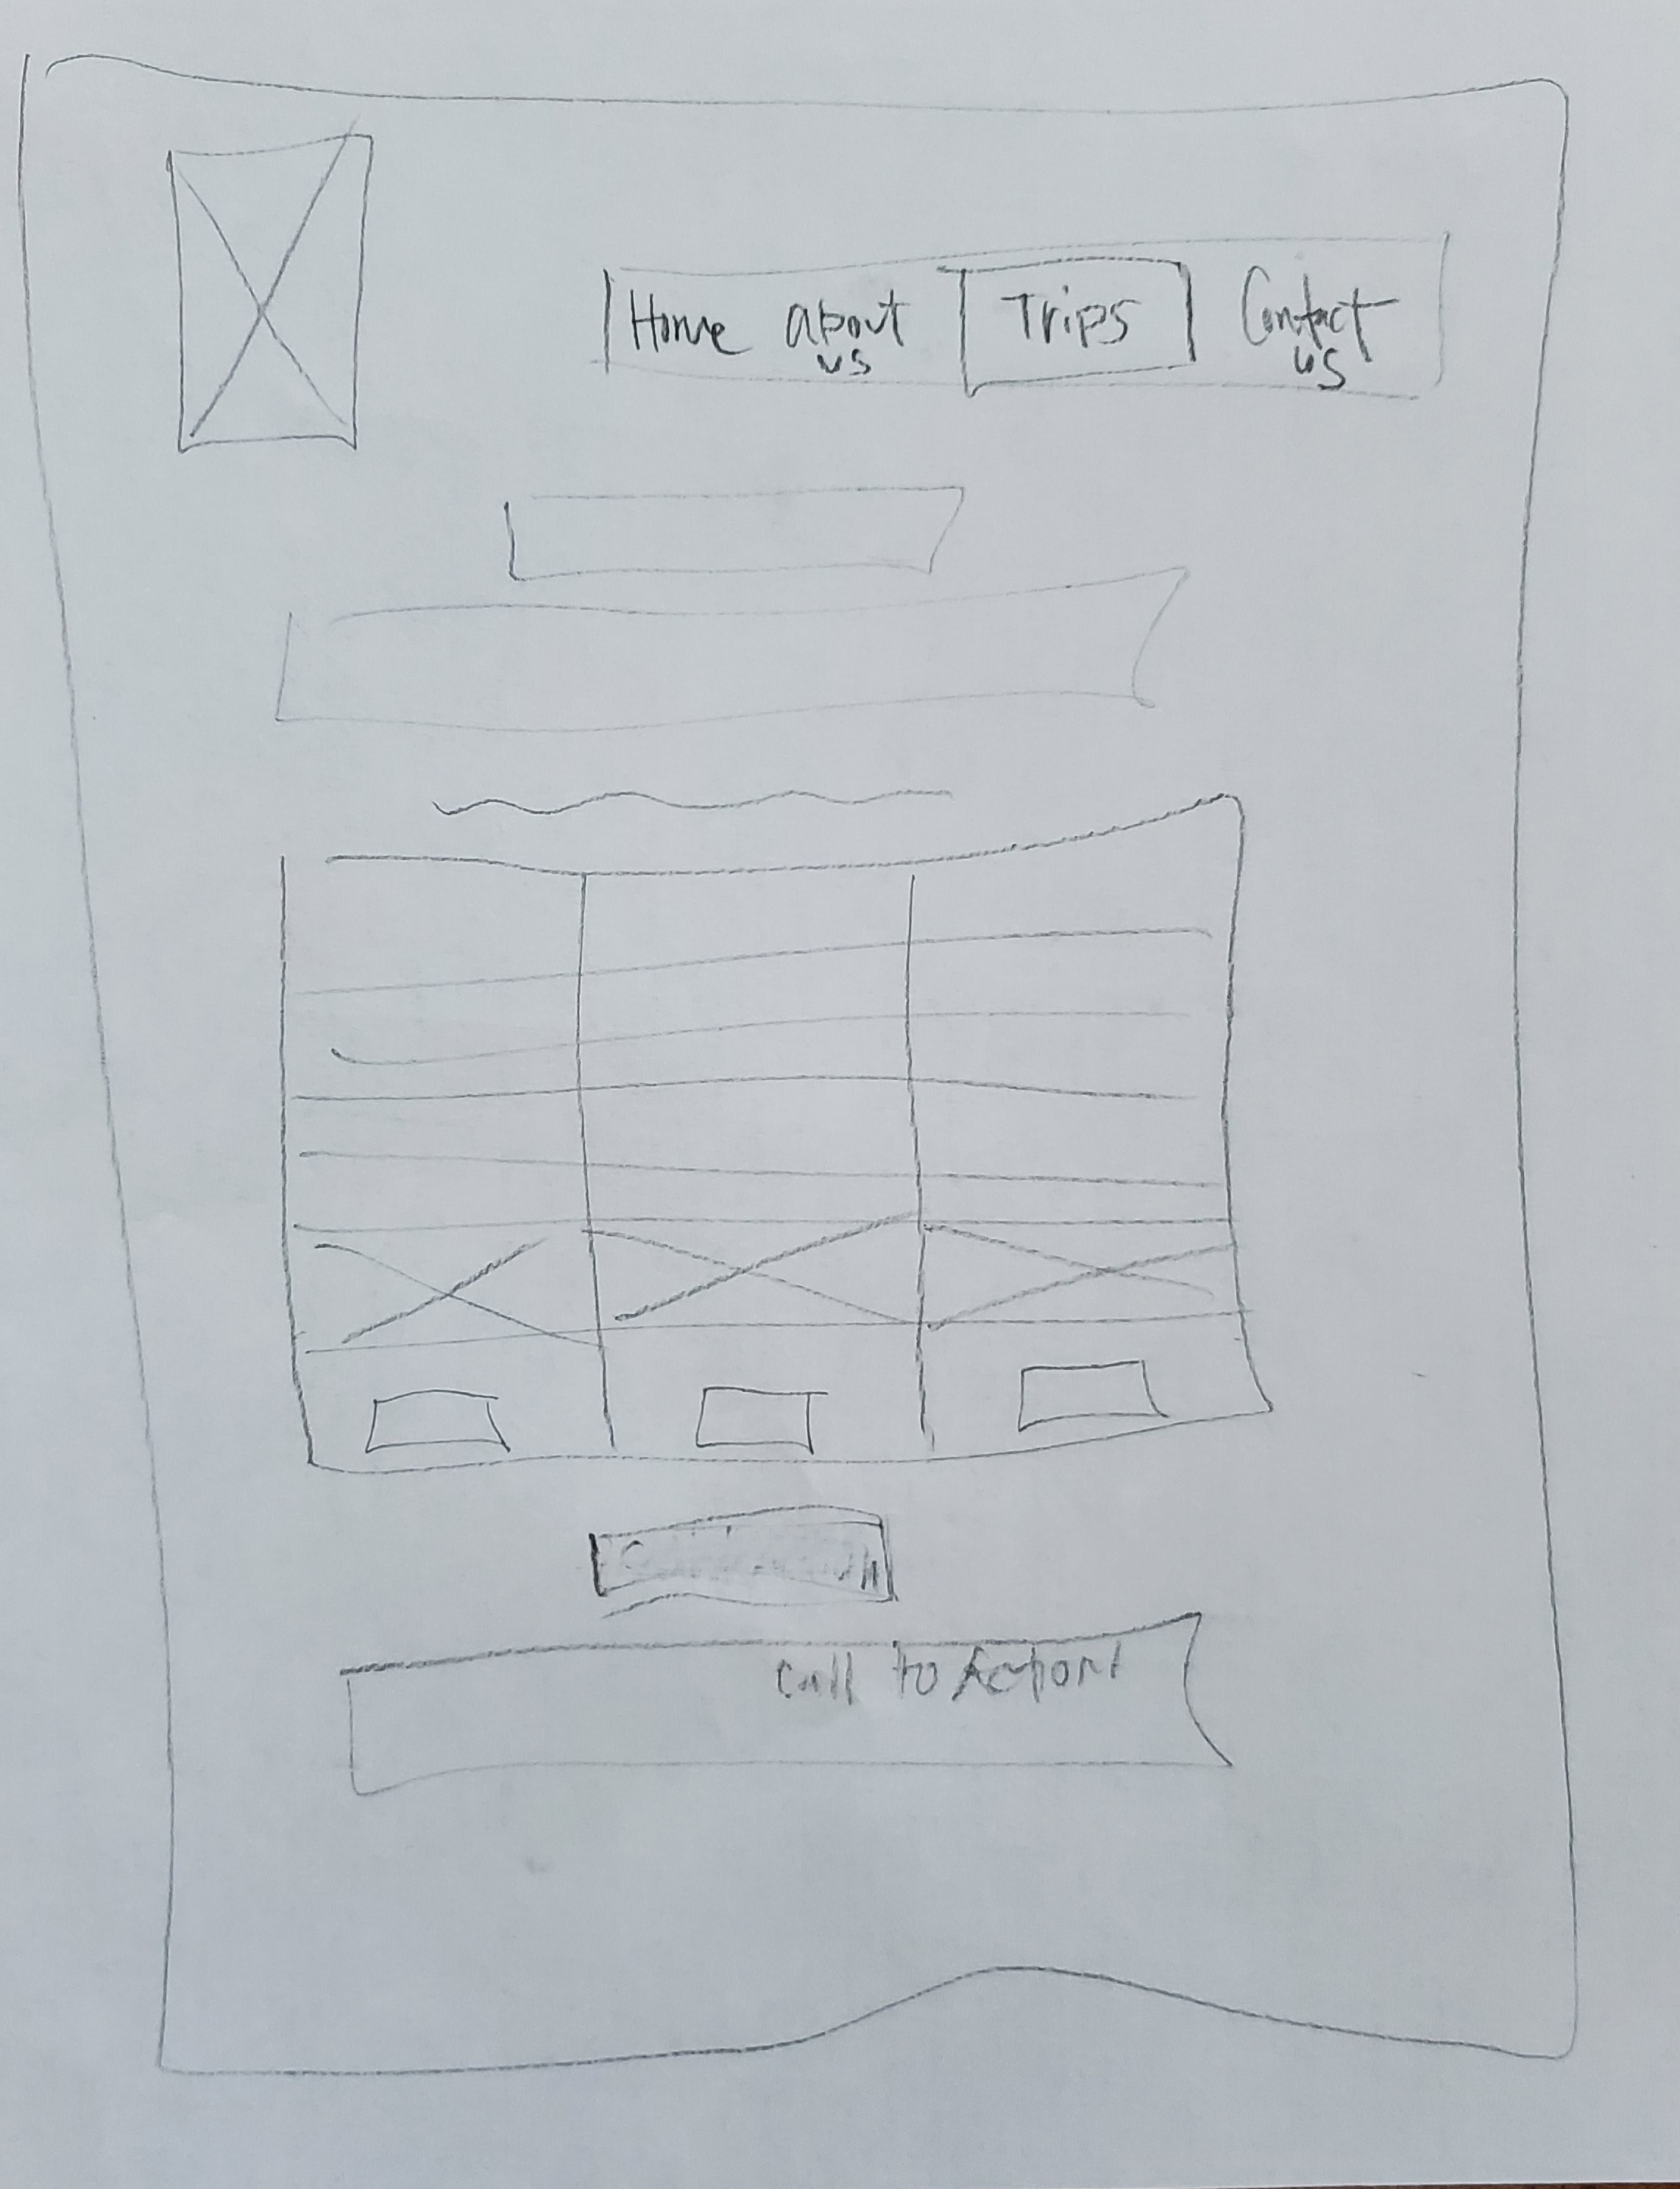 Home about Trips Contact
us us
Call to Action